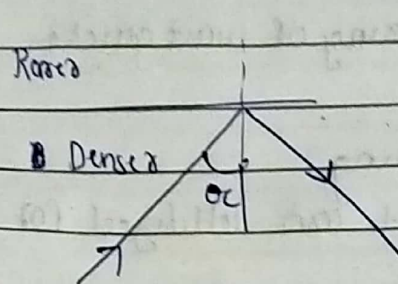 Rarer
Denser
θc